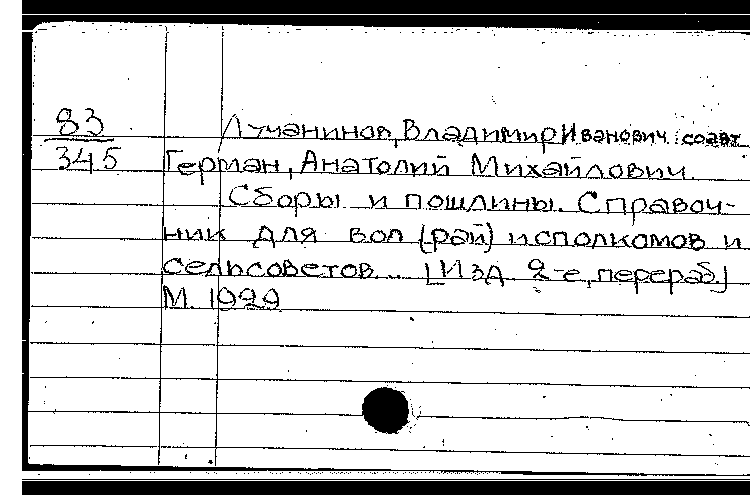 83
345
Лучанинов, Владимир Иванович соавт
Герман, Анатолий Михайлович.
Сборы и пошлины. Справоч-
ник для вол (рай) исполкомов и
сельсоветов... [Изд. 2-е, перераб.]
М. 1929